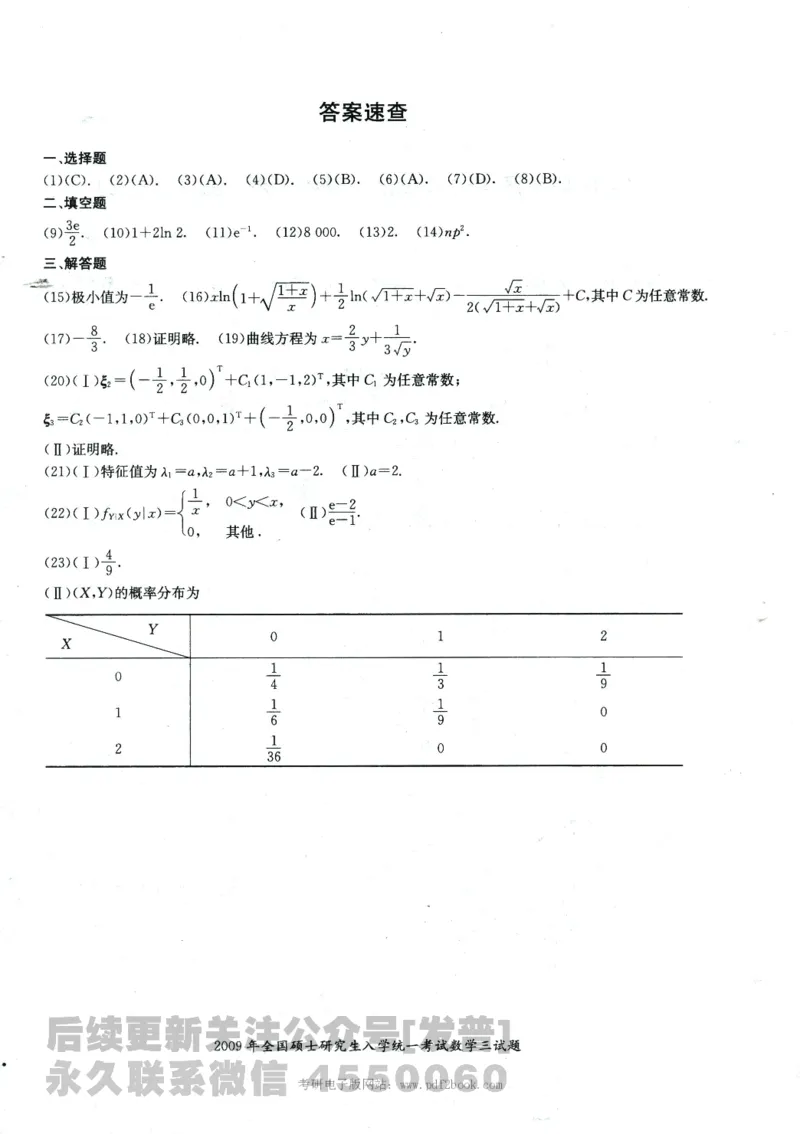 答案速查
一、选择题
(1)(C). (2)(A). (3)(A). (4)(D). (5)(B). (6)(A). (7)(D). (8)(B).
二、填空题
(9)3e/2. (10)1+2ln 2. (11)e⁻¹. (12)8 000. (13)2. (14)np².
三、解答题
(15)极小值为−1/e. (16)xln(1+√((1+x)/x))+1/2 ln(√(1+x)+√x)−√x/(2(√(1+x)+√x))+C,其中 C 为任意常数.
(17)−8/3. (18)证明略. (19)曲线方程为 x=2/3 y+1/(3√y).
(20)(Ⅰ)ξ₂=(−1/2,1/2,0)ᵀ+C₁(1,−1,2)ᵀ,其中 C₁ 为任意常数;
ξ₃=C₂(−1,1,0)ᵀ+C₃(0,0,1)ᵀ+(−1/2,0,0)ᵀ,其中 C₂,C₃ 为任意常数.
(Ⅱ)证明略.
(21)(Ⅰ)特征值为 λ₁=a,λ₂=a+1,λ₃=a−2. (Ⅱ)a=2.
(22)(Ⅰ)f_{Y|X}(y|x)={1/x, 0<y<x, 0, 其他. (Ⅱ)(e−2)/(e−1).
(23)(Ⅰ)4/9.
(Ⅱ)(X,Y)的概率分布为
X Y 0 1 2
0 1/4 1/3 1/9
1 1/6 1/9 0
2 1/36 0 0
后续更新关注公众号[发普]
2009 年全国硕士研究生入学统一考试数学三试题
永久联系微信 4550060
考研电子版网站: www.pdf2book.com